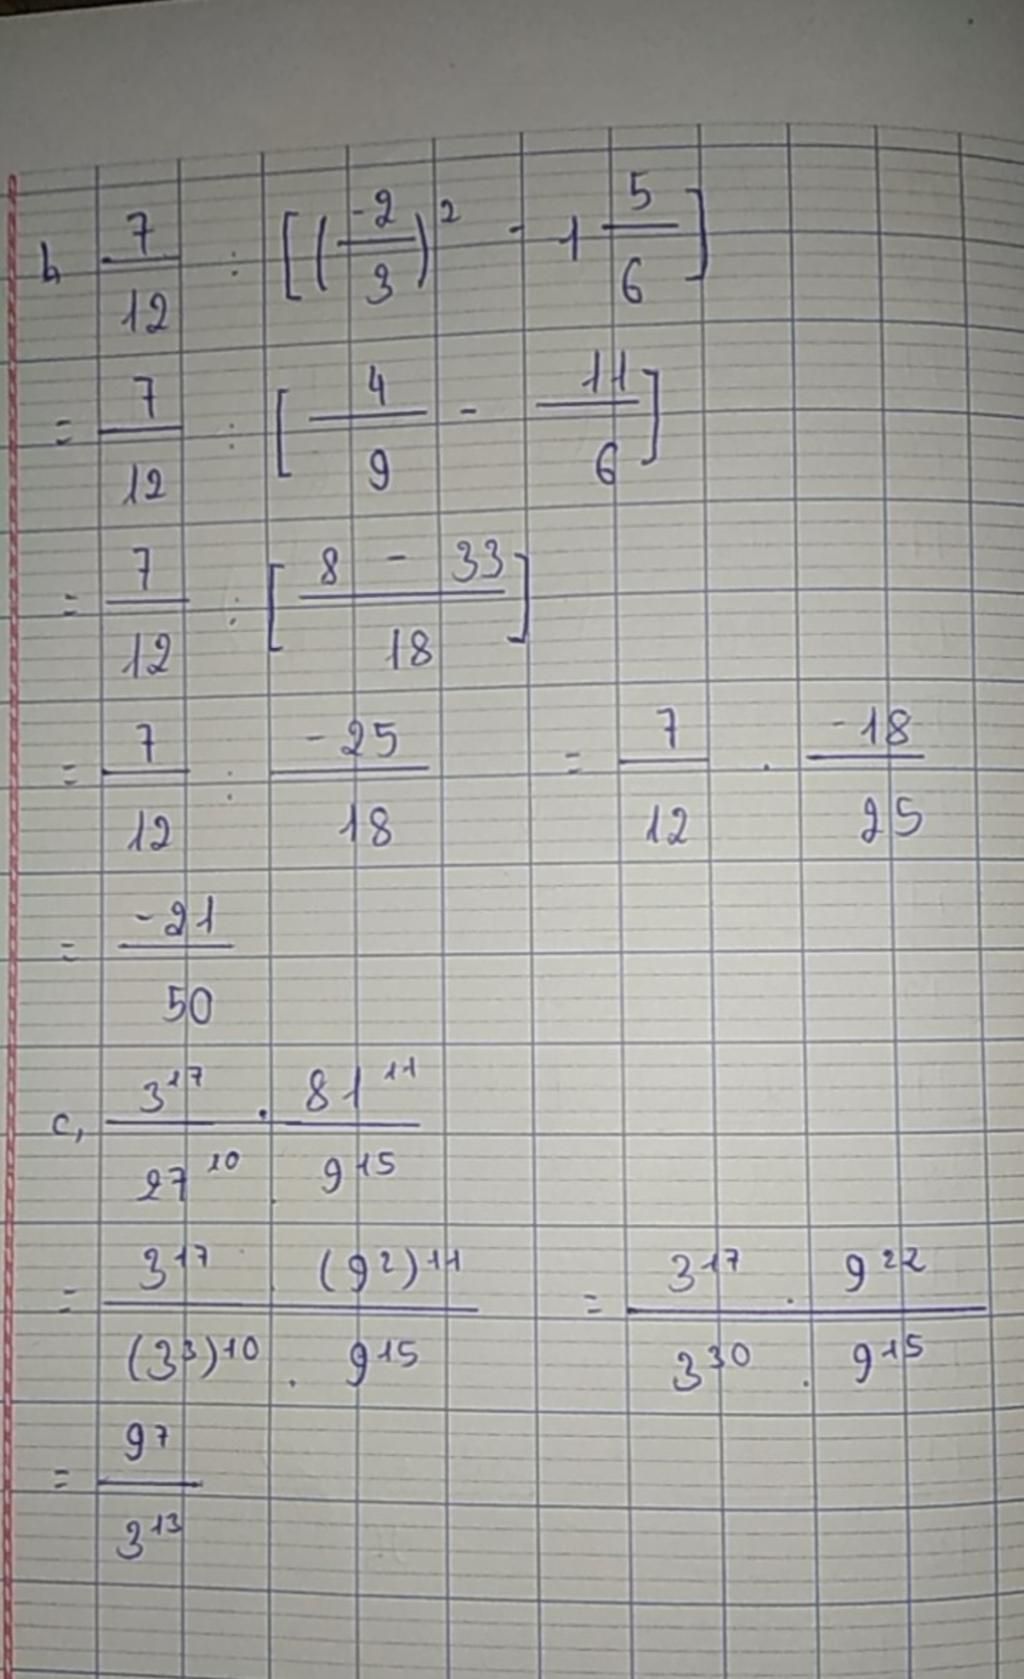 b, 7/12 : [(-2/3)² - 1 5/6]
= 7/12 : [4/9 - 11/6]
= 7/12 : [8 - 33/18]
= 7/12 : -25/18 = 7/12 . -18/25
= -21/50
c, 3¹⁷ . 81¹¹/27¹⁰ . 9¹⁵
= 3¹⁷ . (9²)¹¹/(3³)¹⁰ . 9¹⁵ = 3¹⁷ . 9²²/3³⁰ . 9¹⁵
= 9⁷/3¹³